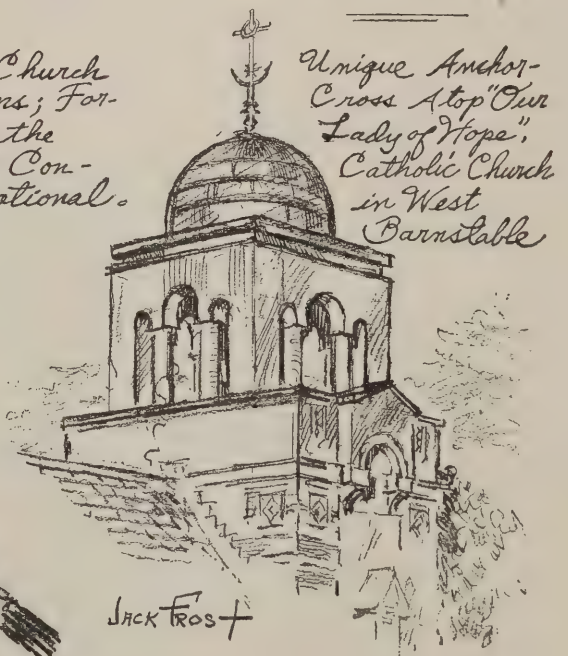 Church
ns; For-
the
Con-
ational.
Unique Anchor-
Cross Atop "Our
Lady of Hope",
Catholic Church
in West
Barnstable
JACK FROST